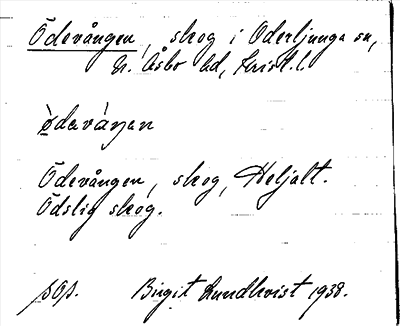 Ödevången, skog i Oderljunga sn,
N. Åsbo hd, Krist. l.
ø̀dəvàŋən
Ödevången, skog, Heljalt.
Ödslig skog.
pop. Birgit Lundkvist 1938.